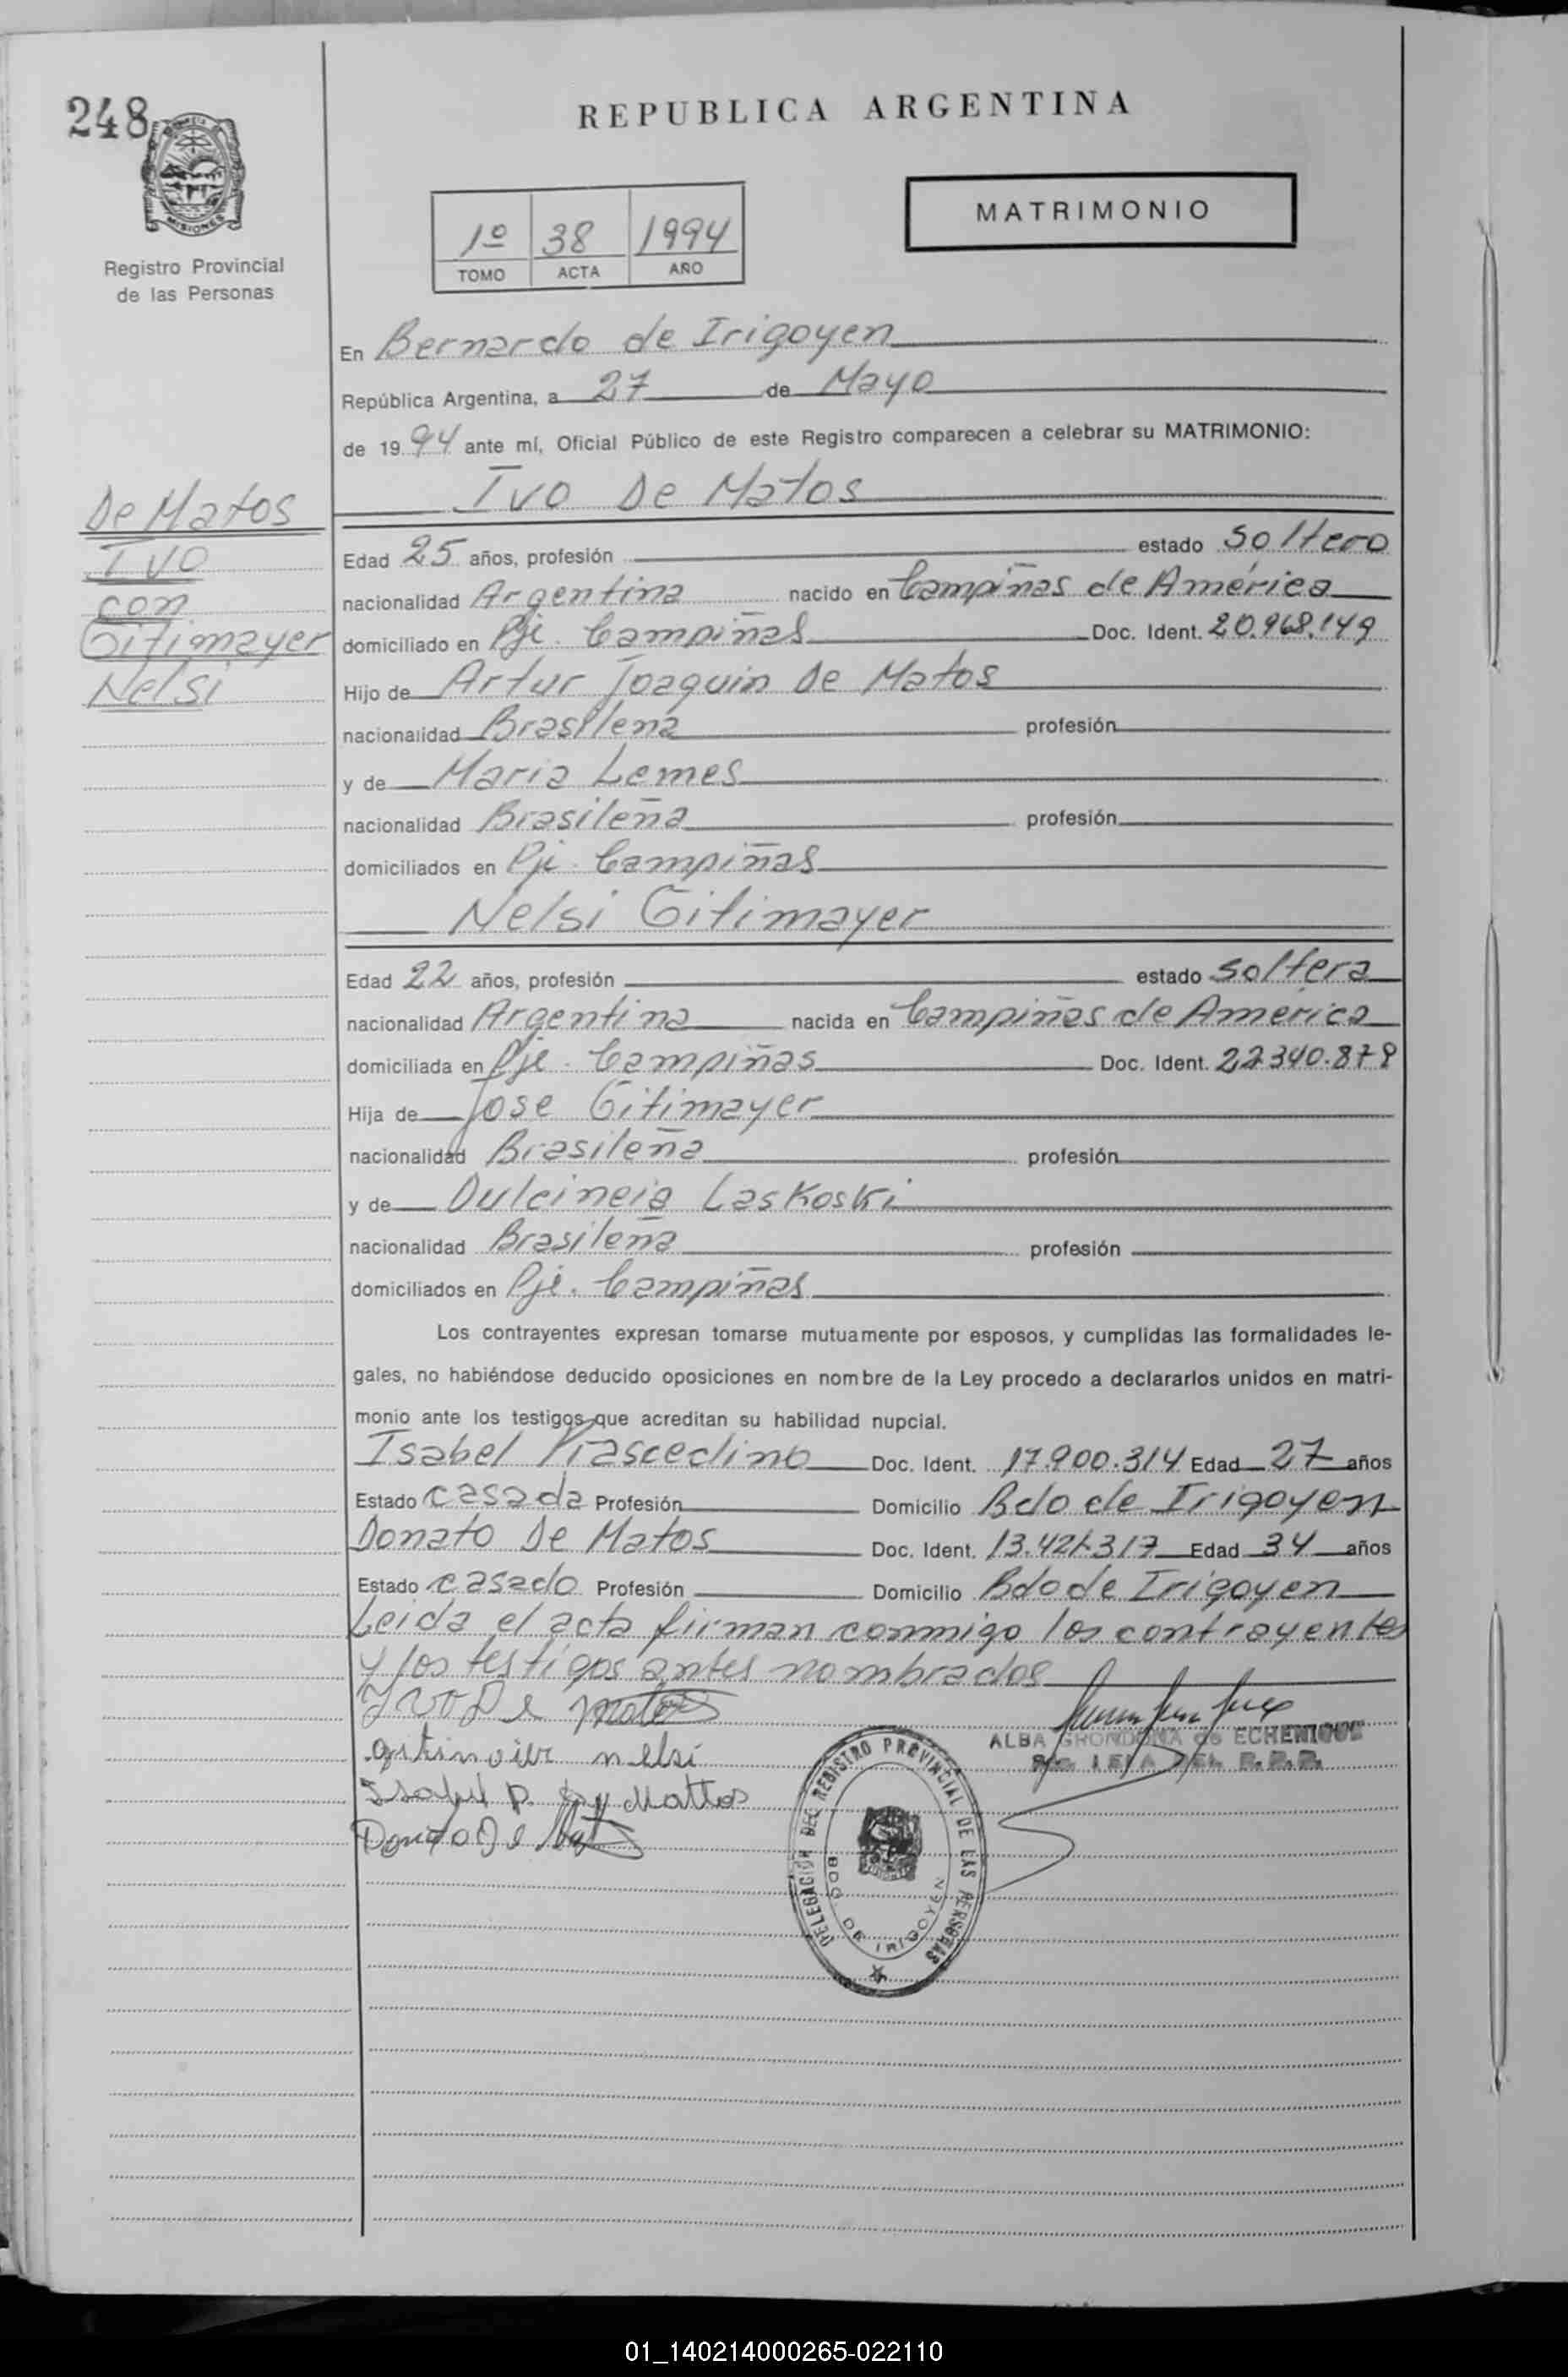 248
MISIONES
Registro Provincial
de las Personas
REPUBLICA ARGENTINA
1º 38 1994
TOMO ACTA AÑO
MATRIMONIO
En Bernardo de Irigoyen
República Argentina, a 27 de Mayo
de 1994 ante mí, Oficial Público de este Registro comparecen a celebrar su MATRIMONIO:
De Matos
Ivo
con
Gitimayer
Nelsi
Ivo De Matos
Edad 25 años, profesión estado soltero
nacionalidad Argentina nacido en Campiñas de América
domiciliado en Pje. Campiñas Doc. Ident. 20.968.149
Hijo de Artur Joaquin De Matos
nacionalidad Brasileña profesión
y de Maria Lemes
nacionalidad Brasileña profesión
domiciliados en Pje. Campiñas
Nelsi Gitimayer
Edad 22 años, profesión estado soltera
nacionalidad Argentina nacida en Campiñas de América
domiciliada en Pje. Campiñas Doc. Ident. 22.340.879
Hija de Jose Gitimayer
nacionalidad Brasileña profesión
y de Dulcineia Laskoski
nacionalidad Brasileña profesión
domiciliados en Pje. Campiñas
Los contrayentes expresan tomarse mutuamente por esposos, y cumplidas las formalidades le-
gales, no habiéndose deducido oposiciones en nombre de la Ley procedo a declararlos unidos en matri-
monio ante los testigos que acreditan su habilidad nupcial.
Isabel Piasceclino Doc. Ident. 17.900.314 Edad 27 años
Estado casada Profesión Domicilio Bdo de Irigoyen
Donato De Matos Doc. Ident. 13.421.317 Edad 34 años
Estado casado Profesión Domicilio Bdo de Irigoyen
Leida el acta firman conmigo los contrayentes
y los testigos antes nombrados
Ivo De matos
nelsi
Isabel P. de Mattos
Donato De Mat
ALBA GRONDONA de ECHENIQUE
DELEGACION DEL REGISTRO PROVINCIAL DE LAS PERSONAS
BDO DE IRIGOYEN
01_140214000265-022110